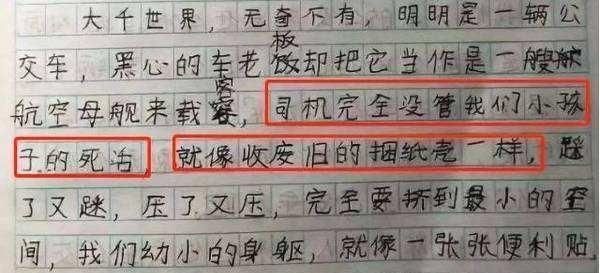 大千世界，无奇不有，明明是一辆公
交车，黑心的车老板却把它当作是一艘
航空母舰来载客，司机完全没管我们小孩
子的死活，就像收废旧的捆纸壳一样，踩
了又踩，压了又压，完全要挤到最小的空
间，我们幼小的身躯，就像一张张便利贴，